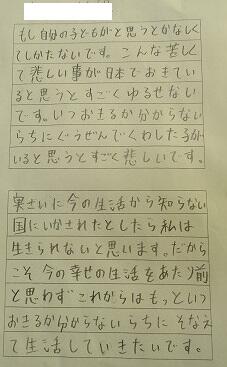 もし自分の子どもがと思うとかなしく
てしかたないです。こんな苦しく
て悲しい事が日本でおきてい
ると思うとすごくゆるせない
です。いつおきるか分からない
らちにぐうぜんでくわした子が
いると思うとすごく悲しいです。
実さいに今の生活から知らない
国にいかされたとしたら私は
生きられないと思います。だから
こそ今の幸せの生活をあたり前
と思わずこれからはもっといつ
おきるか分からないらちにそなえ
て生活していきたいです。